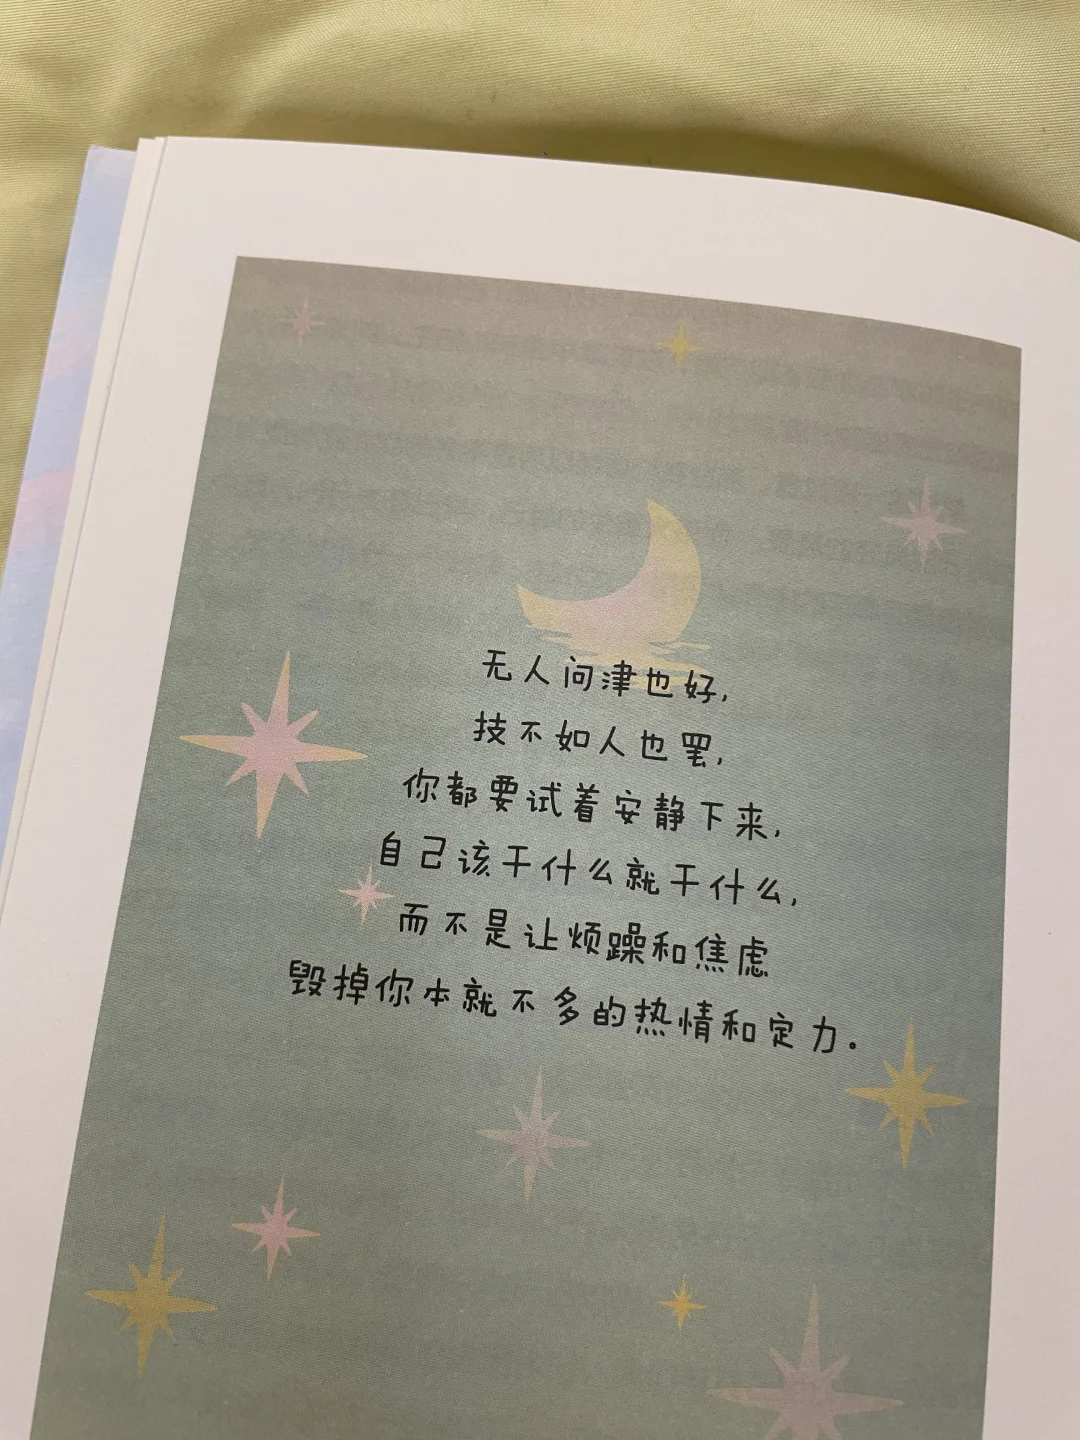 无人问津也好，
技不如人也罢，
你都要试着安静下来，
自己该干什么就干什么，
而不是让烦躁和焦虑
毁掉你本就不多的热情和定力。